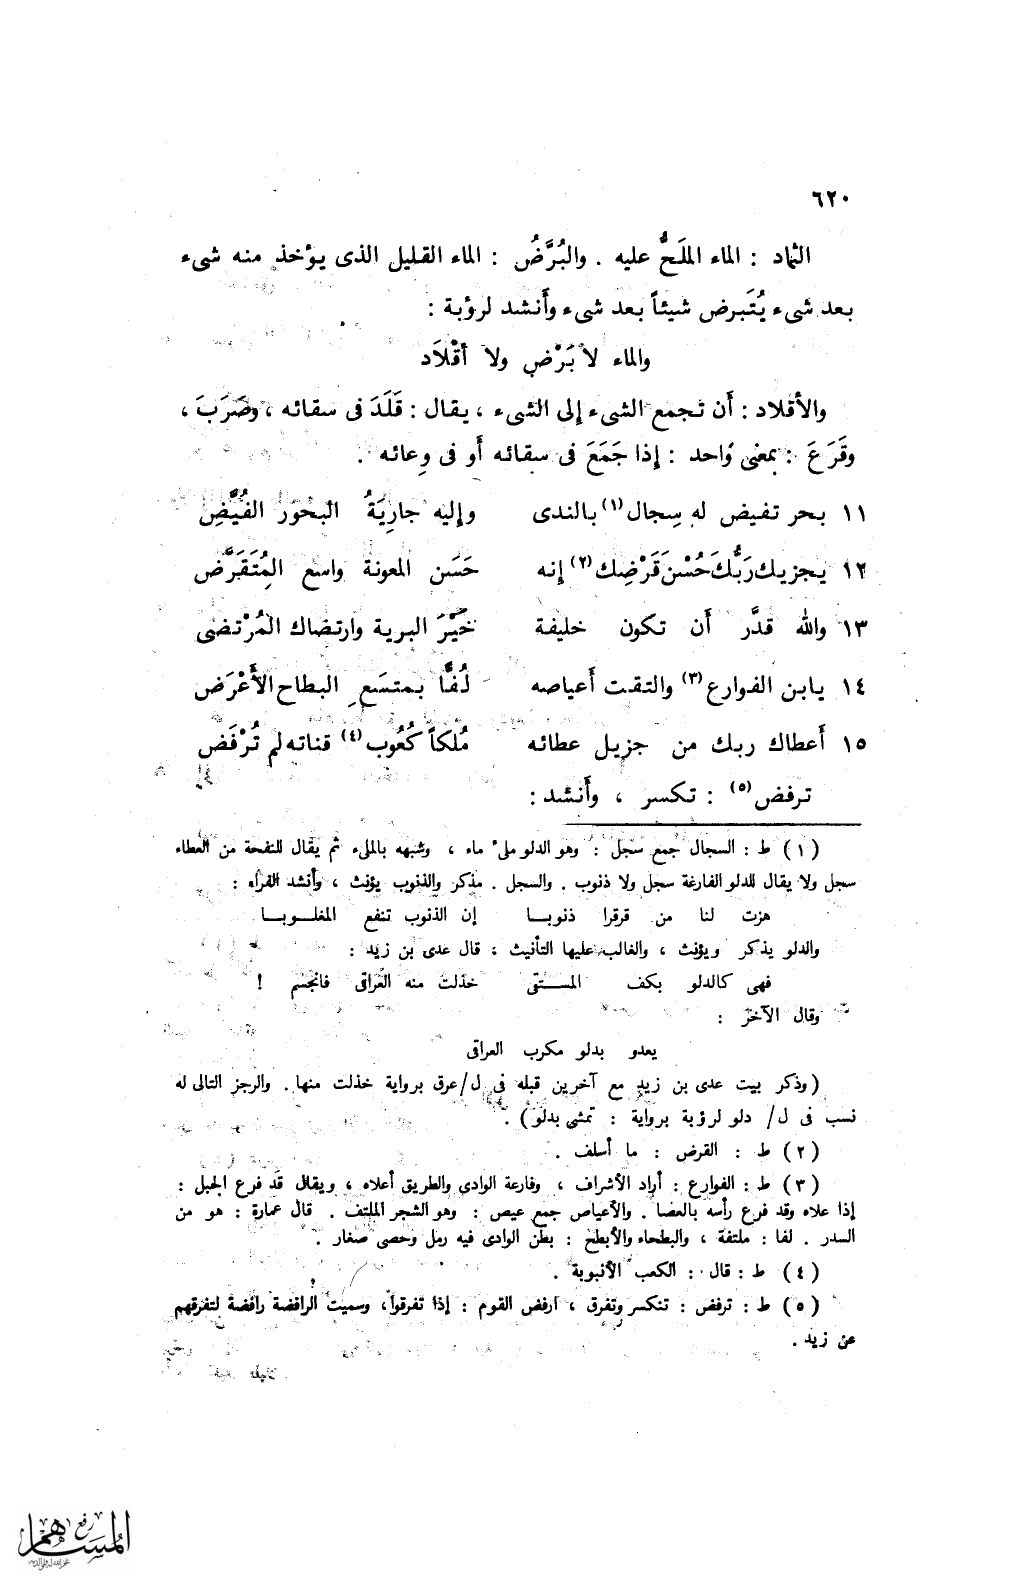 ٦٢٠
الثماد : الماء الملَحُّ عليه . والبُرَّضُ : الماء القليل الذى يؤخذ منه شىء
بعد شىء يُتَبرض شيئاً بعد شىء وأَنشد لرؤبة :
والماء لا بَرْضٍ ولا أقْلاَد
والأقلاد : أَن تجمع الشىء إلى الشىء ، يقال : قَلَدَ فى سقائه ، وصَرَبَ ،
وقَرَعَ : بمعنى واحد : إذا جَمَعَ فى سقائه أَو فى وِعائه .
١١ بحر تفيض له سِجال(١) بالندى وإليه جارِيَةُ البحور الفُيَّضِ
١٢ يجزيك رَبُّكَ حُسْنَ قَرْضِك(٢) إنه حَسَن المعونة واسع المِتَقَرَّض
١٣ والله قدَّر أَن تكون خليفة خَيْرَ البرية وارتضاك المُرْتضى
١٤ يابن الفوارع(٣) والتقت أَعياصه لُفًّا بمتسَعِ البطاح الأَعْرَض
١٥ أَعطاك ربك من جزيل عطائه مُلكاً كُعُوب(٤) قناته لم تُرْفَض
ترفض(٥) : تكسر ، وأَنشد :
(١) ط : السجال جمع سجل : وهو الدلو ملىء ماء ، وشبهه بالملىء ثم يقال للنفحة من العطاء
سجل ولا يقال للدلو الفارغة سجل ولا ذنوب . والسجل . مذكر والذنوب يؤنث ، وأنشد الفراء :
هزت لنا من قرقرا ذنوبــا إن الذنوب تنفع المغلــوبــا
والدلو يذكر ويؤنث ، والغالب عليها التأنيث : قال عدى بن زيد :
فهى كالدلو بكف المســتقى خذلت منه العراقى فانجذم !
وقال الآخر :
يعدو بدلو مكرب العراقى
(وذكر بيت عدى بن زيد مع آخرين قبله فى ل/عرق برواية خذلت منها . والرجز التالى له
نسب فى ل/ دلو لرؤبة برواية : تمشى بدلو) .
(٢) ط : القرض : ما أسلف .
(٣) ط : الفوارع : أراد الأشراف ، وفارعة الوادى والطريق أعلاه ، ويقال قد فرع الجبل :
إذا علاه وقد فرع رأسه بالعصا . والأعياص جمع عيص : وهو الشجر الملتف . قال عمارة : هو من
السدر . لفا : ملتفة ، والبطحاء والأبطح : بطن الوادى فيه رمل وحصى صغار .
(٤) ط : قال : الكعب الأنبوبة .
(٥) ط : ترفض : تنكسر وتفرق ، ارفض القوم : إذا تفرقوا، وسميت الرافضة رافضة لتفرقهم
عن زيد .